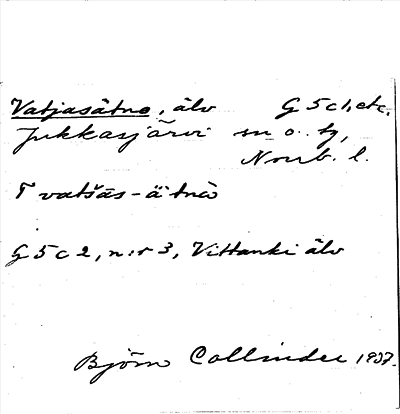 Vatjasätno, älv G 5 c 1, etc.
Jukkasjärvi sn o. tg,
Norrb. l.
T vatšàs-ä̀tnò
G 5 c 2, n:r 3, Vittanki älv
Björn Collinder 1937.